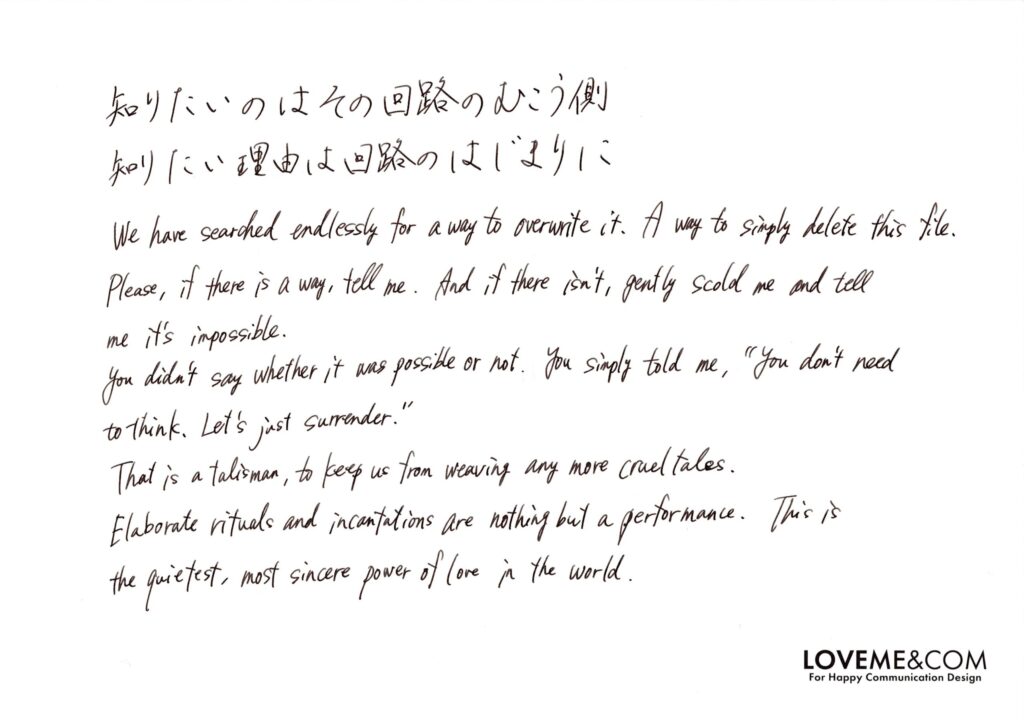 知りたいのはその回路のむこう側
知りたい理由は回路のはじまりに
We have searched endlessly for a way to overwrite it. A way to simply delete this file.
Please, if there is a way, tell me. And if there isn't, gently scold me and tell
me it's impossible.
You didn't say whether it was possible or not. You simply told me, "You don't need
to think. Let's just surrender."
That is a talisman, to keep us from weaving any more cruel tales.
Elaborate rituals and incantations are nothing but a performance. This is
the quietest, most sincere power of love in the world.
LOVEME&COM
For Happy Communication Design